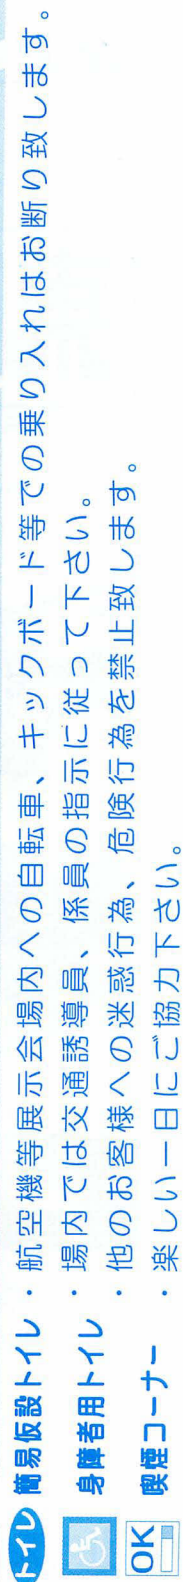 トイレ 簡易仮設トイレ
身障者用トイレ
OK 喫煙コーナー
・航空機等展示会場内への自転車、キックボード等での乗り入れはお断り致します。
・場内では交通誘導員、係員の指示に従って下さい。
・他のお客様への迷惑行為、危険行為を禁止致します。
・楽しい一日にご協力下さい。